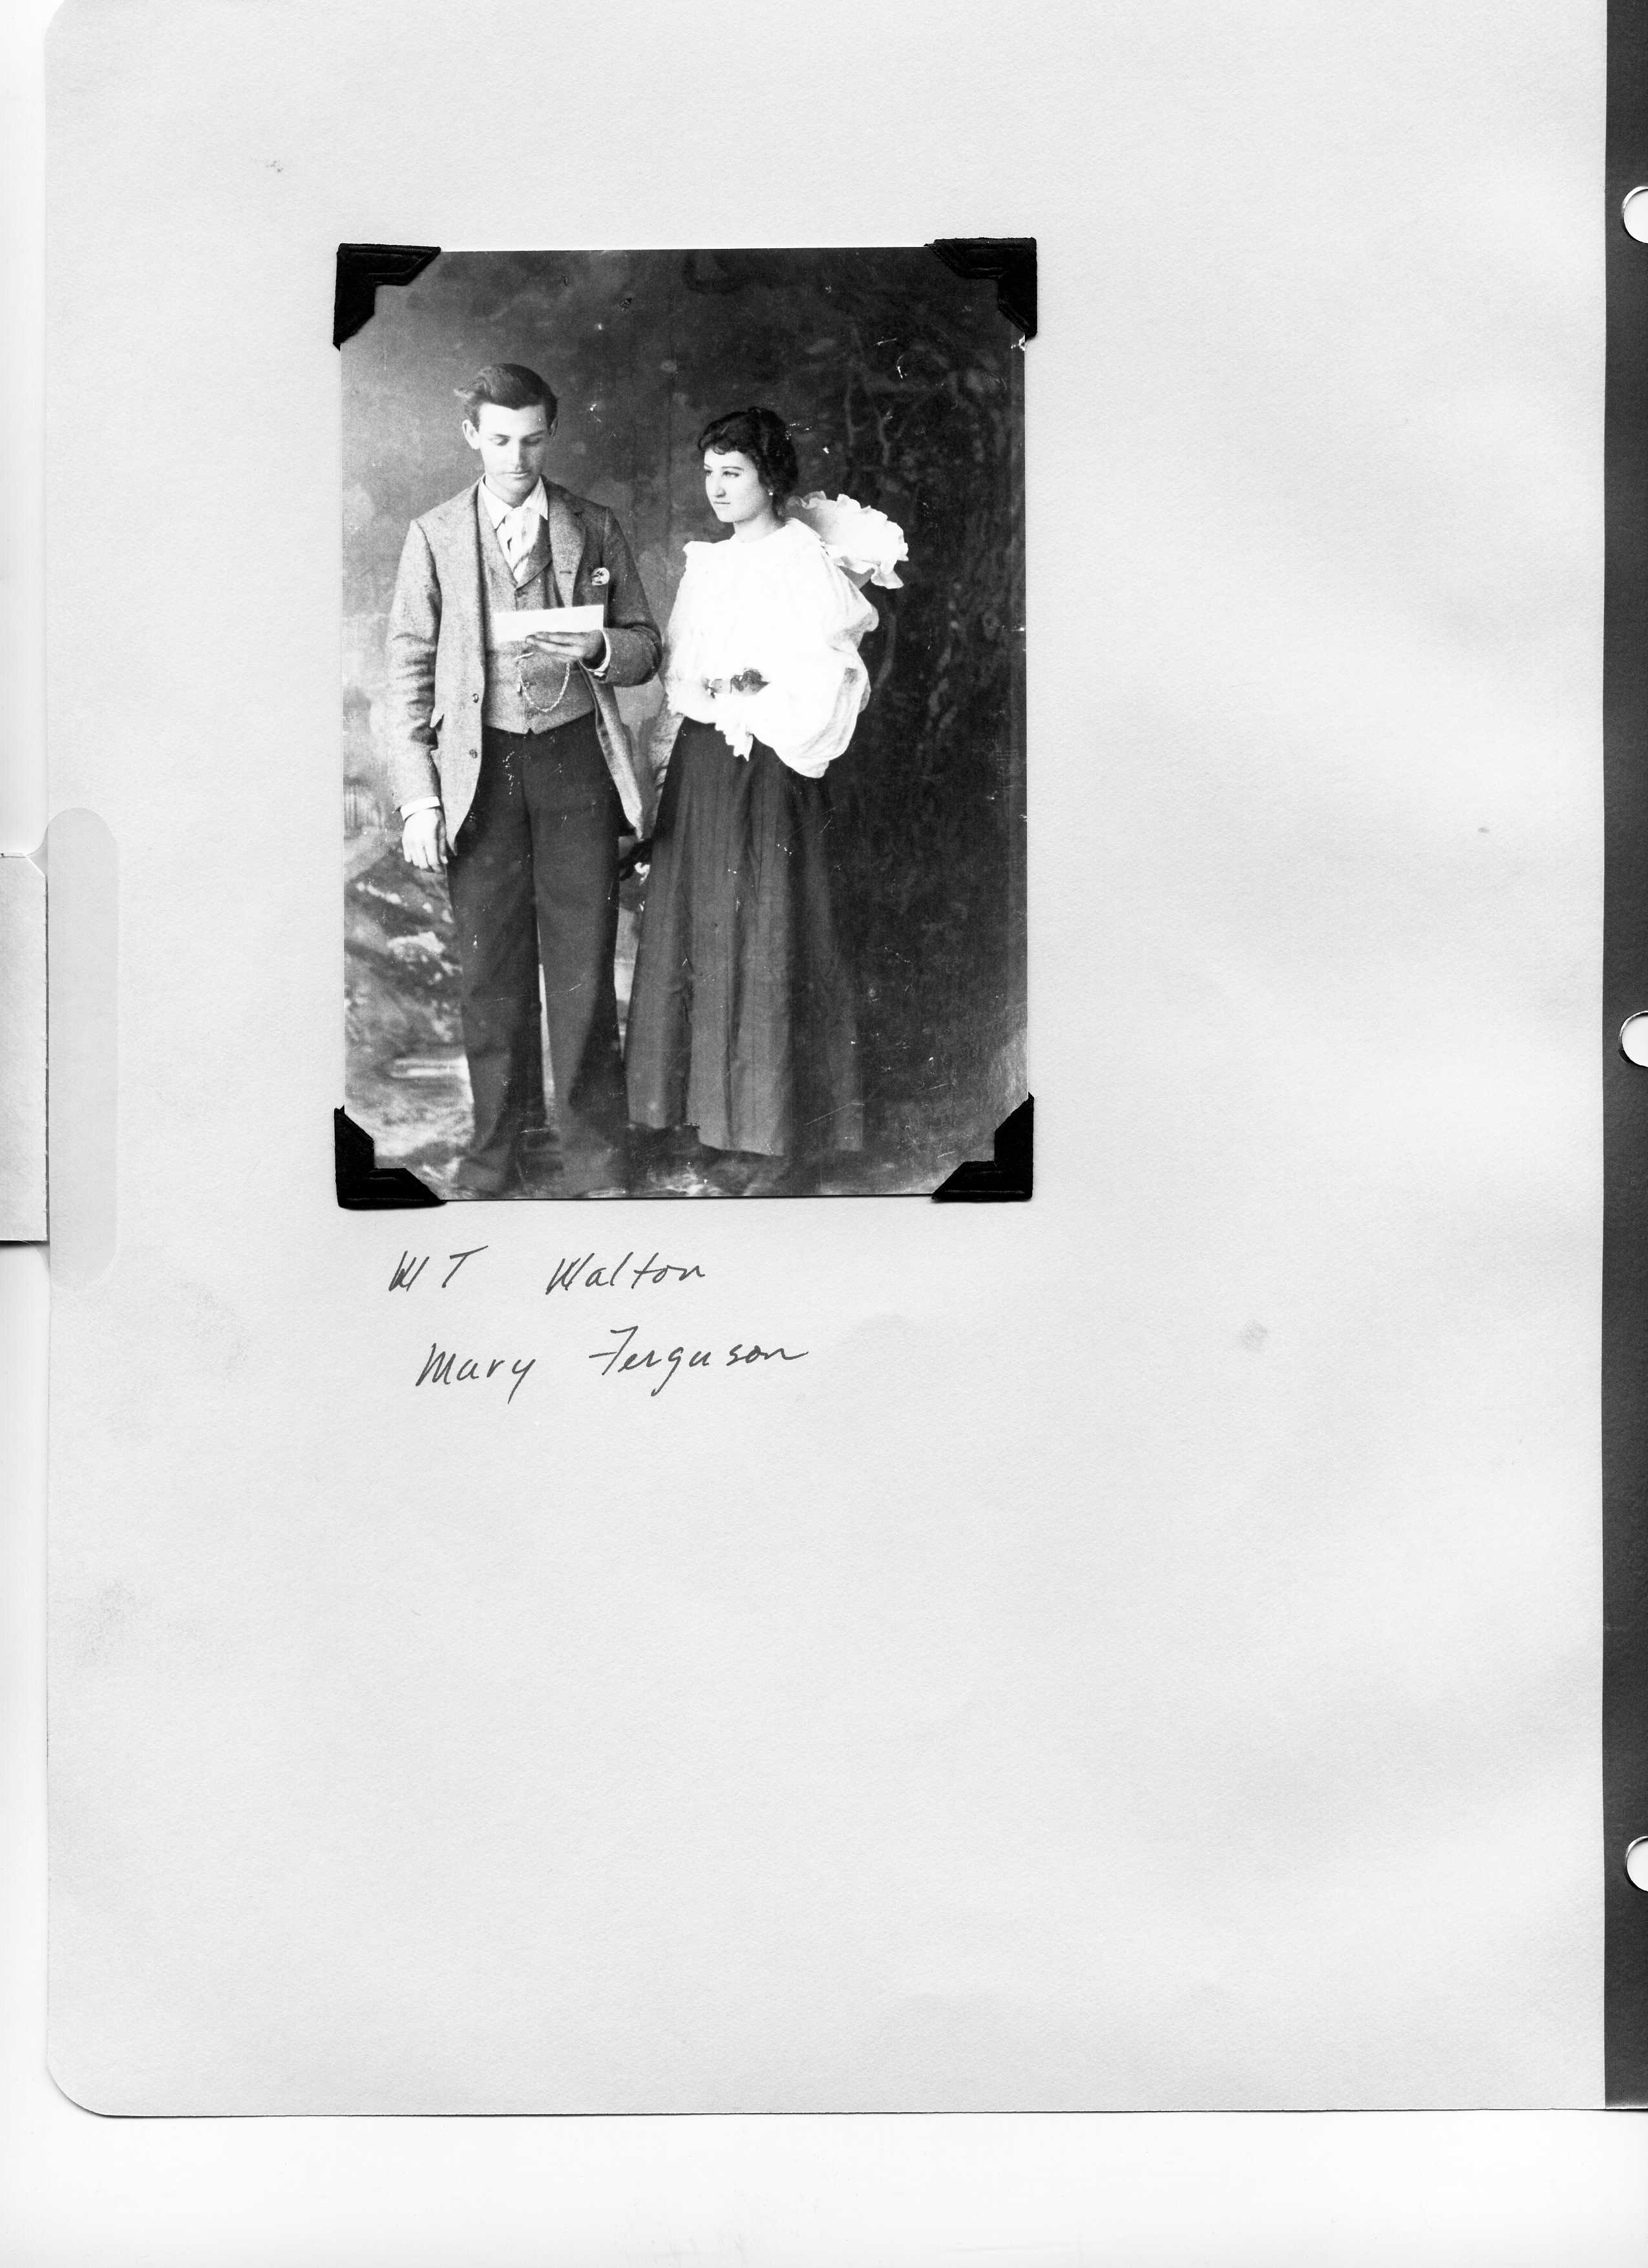 WT Walton
Mary Ferguson